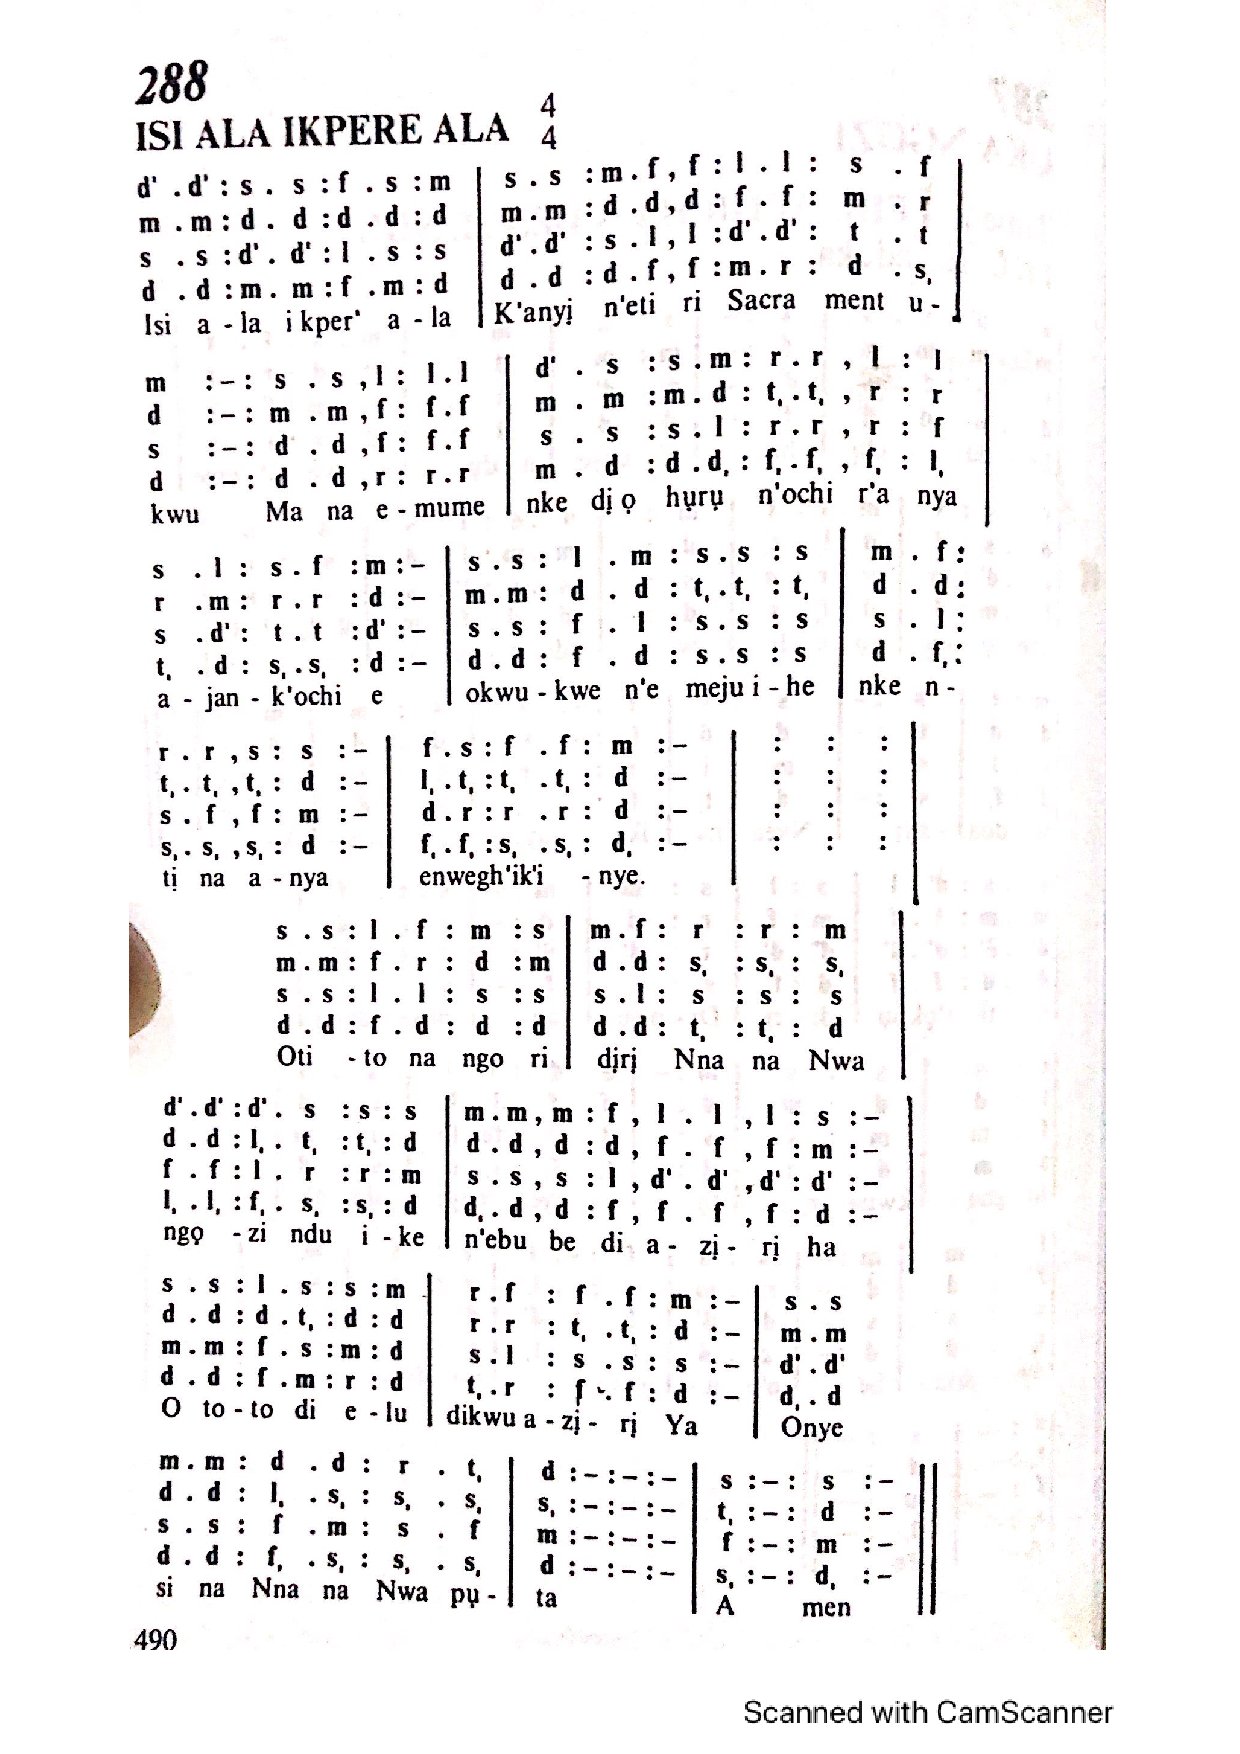 288
ISI ALA IKPERE ALA 4/4
d' .d' : s . s : f . s : m | s . s : m . f , f : l . l : s . f |
m . m : d . d : d . d : d | m . m : d . d , d : f . f : m . r
s . s : d' . d' : l . s : s | d' . d' : s . l , l : d' . d' : t . t
d . d : m . m : f . m : d | d . d : d . f , f : m . r : d . s,
Isi a - la i kper' a - la | K'anyị n'eti ri Sacra ment u -
m : – : s . s , l : l . l | d' . s : s . m : r . r , l : l |
d : – : m . m , f : f . f | m . m : m . d : t, . t, , r : r
s : – : d . d , f : f . f | s . s : s . l : r . r , r : f
d : – : d . d , r : r . r | m . d : d . d, : f, . f, , f, : l,
kwu Ma na e - mume | nke dị ọ hụrụ n'ochi r'a nya
s . l : s . f : m : – | s . s : l . m : s . s : s | m . f :
r . m : r . r : d : – | m . m : d . d : t, . t, : t, | d . d :
s . d' : t . t : d' : – | s . s : f . l : s . s : s | s . l :
t, . d : s, . s, : d : – | d . d : f . d : s . s : s | d . f, :
a - jan - k'ochi e | okwu - kwe n'e meju i - he | nke n -
r . r , s : s : – | f . s : f . f : m : – | : : : |
t, . t, , t, : d : – | l, . t, : t, . t, : d : – | : : :
s . f , f : m : – | d . r : r . r : d : – | : : :
s, . s, , s, : d : – | f, . f, : s, . s, : d, : – | : : :
tị na a - nya | enwegh'ik'i - nye.
s . s : l . f : m : s | m . f : r : r : m |
m . m : f . r : d : m | d . d : s, : s, : s,
s . s : l . l : s : s | s . l : s : s : s
d . d : f . d : d : d | d . d : t, : t, : d
Oti - to na ngo ri | dịrị Nna na Nwa
d' . d' : d' . s : s : s | m . m , m : f , l . l , l : s : – |
d . d : l, . t, : t, : d | d . d , d : d , f . f , f : m : –
f . f : l . r : r : m | s . s , s : l , d' . d' , d' : d' : –
l, . l, : f, . s, : s, : d | d, . d , d : f , f . f , f : d : –
ngọ - zi ndu i - ke | n'ebu be di a - zị - rị ha
s . s : l . s : s : m | r . f : f . f : m : – | s . s
d . d : d . t, : d : d | r . r : t, . t, : d : – | m . m
m . m : f . s : m : d | s . l : s . s : s : – | d' . d'
d . d : f . m : r : d | t, . r : f . f : d : – | d, . d
O to - to di e - lu | dikwu a - zị - rị Ya | Onye
m . m : d . d : r . t, | d : – : – : – | s : – : s : – ||
d . d : l, . s, : s, . s, | s, : – : – : – | t, : – : d : –
s . s : f . m : s . f | m : – : – : – | f : – : m : –
d . d : f, . s, : s, . s, | d : – : – : – | s, : – : d, : –
si na Nna na Nwa pụ - | ta | A men
490
Scanned with CamScanner